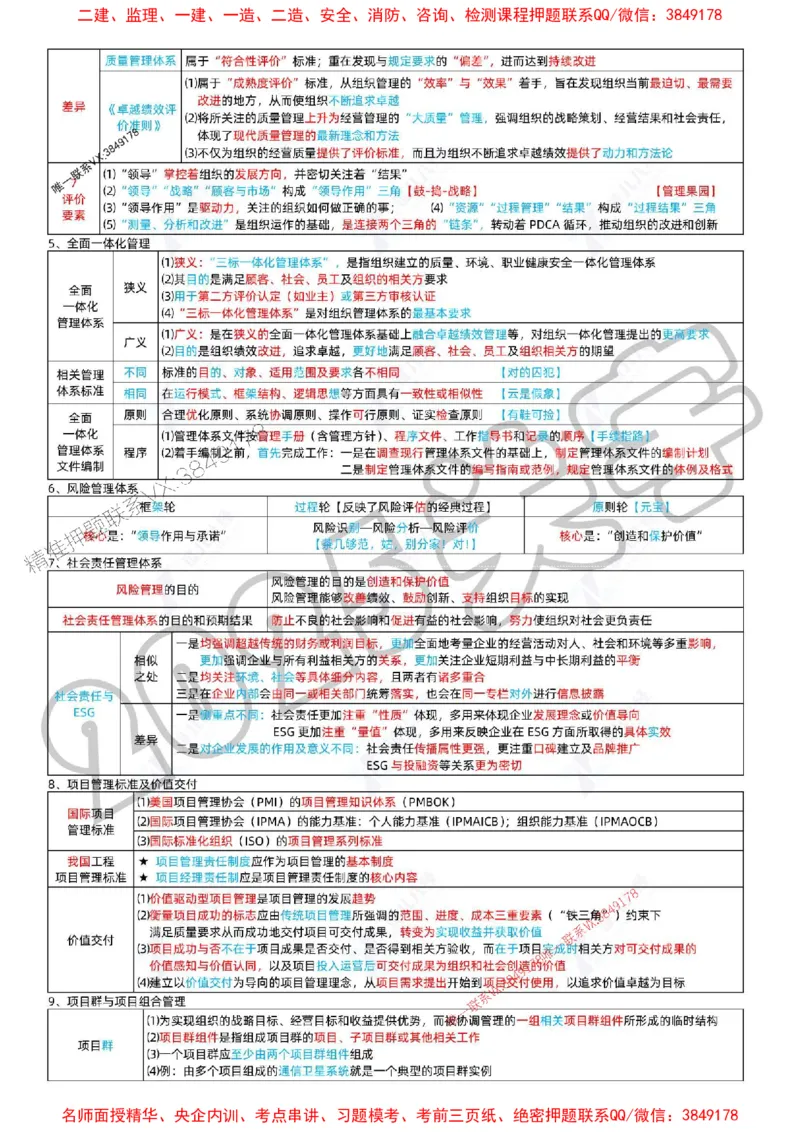 二建、监理、一建、一造、二造、安全、消防、咨询、检测课程押题联系QQ/微信：3849178
差异
质量管理体系
属于“符合性评价”标准；重在发现与规定要求的“偏差”，进而达到持续改进
《卓越绩效评价准则》
(1)属于“成熟度评价”标准，从组织管理的“效率”与“效果”着手，旨在发现组织当前最迫切、最需要
改进的地方，从而使组织不断追求卓越
(2)将所关注的质量管理上升为经营管理的“大质量”管理，强调组织的战略策划、经营结果和社会责任，
体现了现代质量管理的最新理念和方法
(3)不仅为组织的经营质量提供了评价标准，而且为组织不断追求卓越绩效提供了动力和方法论
唯一联系VX:3849178
评价
要素
(1)“领导”掌控着组织的发展方向，并密切关注着“结果”
(2)“领导”“战略”“顾客与市场”构成“领导作用”三角【鼓-捣-战略】 【管理果园】
(3)“领导作用”是驱动力，关注的组织如何做正确的事； (4)“资源”“过程管理”“结果”构成“过程结果”三角
(5)“测量、分析和改进”是组织运作的基础，是连接两个三角的“链条”，转动着 PDCA 循环，推动组织的改进和创新
5、全面一体化管理
全面
一体化
管理体系
狭义
(1)狭义：“三标一体化管理体系”，是指组织建立的质量、环境、职业健康安全一体化管理体系
(2)其目的是满足顾客、社会、员工及组织的相关方要求
(3)用于第二方评价认定（如业主）或第三方审核认证
(4)“三标一体化管理体系”是对组织管理体系的最基本要求
广义
(1)广义：是在狭义的全面一体化管理体系基础上融合卓越绩效管理等，对组织一体化管理提出的更高要求
(2)目的是组织绩效改进，追求卓越，更好地满足顾客、社会、员工及组织相关方的期望
相关管理
体系标准
不同 标准的目的、对象、适用范围及要求各不相同 【对的囚犯】
相同 在运行模式、框架结构、逻辑思想等方面具有一致性或相似性 【云是假象】
全面
一体化
管理体系
文件编制
原则 合理优化原则、系统协调原则、操作可行原则、证实检查原则 【有鞋可捡】
程序
(1)管理体系文件按管理手册（含管理方针）、程序文件、工作指导书和记录的顺序【手续指路】
(2)着手编制之前，首先完成工作：一是在调查现行管理体系文件的基础上，制定管理体系文件的编制计划
二是制定管理体系文件的编写指南或范例，规定管理体系文件的体例及格式
6、风险管理体系
框架轮 过程轮【反映了风险评估的经典过程】 原则轮【元宝】
核心是：“领导作用与承诺”
风险识别—风险分析—风险评价
【兼几够范，姑，别分家！对！】
核心是：“创造和保护价值”
7、社会责任管理体系
风险管理的目的
风险管理的目的是创造和保护价值
风险管理能够改善绩效、鼓励创新、支持组织目标的实现
社会责任管理体系的目的和预期结果 防止不良的社会影响和促进有益的社会影响，努力使组织对社会更负责任
社会责任与
ESG
相似
之处
一是均强调超越传统的财务或利润目标，更加全面地考量企业的经营活动对人、社会和环境等多重影响，
更加强调企业与所有利益相关方的关系，更加关注企业短期利益与中长期利益的平衡
二是均关注环境、社会等具体细分内容，且两者有诸多重合
三是在企业内部会由同一或相关部门统筹落实，也会在同一专栏对外进行信息披露
差异
一是侧重点不同：社会责任更加注重“性质”体现，多用来体现企业发展理念或价值导向
ESG 更加注重“量值”体现，多用来反映企业在 ESG 方面所取得的具体实效
二是对企业发展的作用及意义不同：社会责任传播属性更强，更注重口碑建立及品牌推广
ESG 与投融资等关系更为密切
8、项目管理标准及价值交付
国际项目
管理标准
(1)美国项目管理协会（PMI）的项目管理知识体系（PMBOK）
(2)国际项目管理协会（IPMA）的能力基准：个人能力基准（IPMAICB）；组织能力基准（IPMAOCB）
(3)国际标准化组织（ISO）的项目管理系列标准
我国工程
项目管理标准
★ 项目管理责任制度应作为项目管理的基本制度
★ 项目经理责任制应是项目管理责任制度的核心内容
价值交付
(1)价值驱动型项目管理是项目管理的发展趋势
(2)衡量项目成功的标志应由传统项目管理所强调的范围、进度、成本三重要素（“铁三角”）约束下
满足质量要求从而成功地交付项目可交付成果，转变为实现收益并获取价值
(3)项目成功与否不在于项目成果是否交付、是否得到相关方验收，而在于项目完成时相关方对可交付成果的
价值感知与价值认同，以及项目投入运营后可交付成果为组织和社会创造的价值
(4)建立以价值交付为导向的项目管理理念，从项目需求提出开始到项目交付使用，以追求价值卓越为目标
9、项目群与项目组合管理
项目群
(1)为实现组织的战略目标、经营目标和收益提供优势，而被协调管理的一组相关项目群组件所形成的临时结构
(2)项目群组件是指组成项目群的项目、子项目群或其他相关工作
(3)一个项目群应至少由两个项目群组件组成
(4)例：由多个项目组成的通信卫星系统就是一个典型的项目群实例
精准押题联系VX:3849178
唯一联系VX:3849178
名师面授精华、央企内训、考点串讲、习题模考、考前三页纸、绝密押题联系QQ/微信：3849178